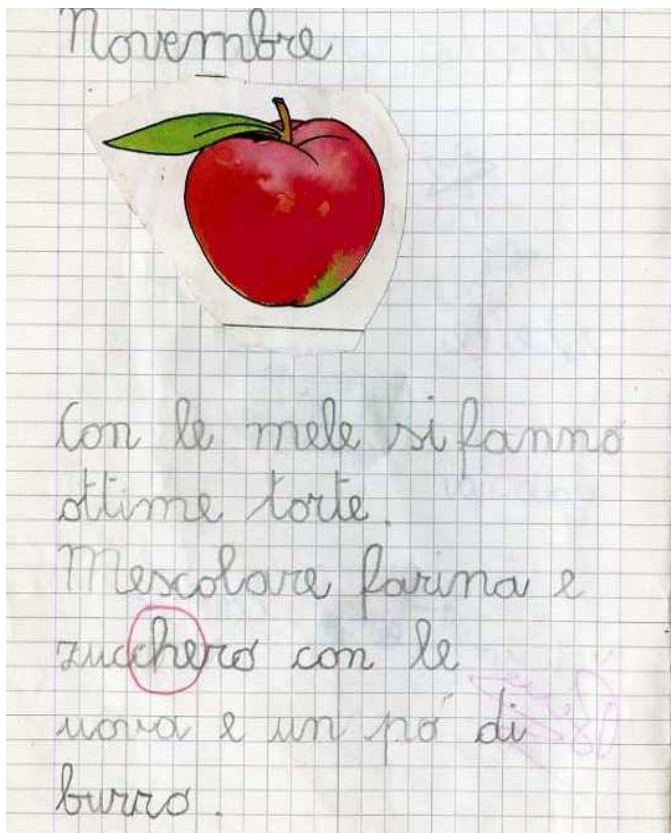 Novembre
Con le mele si fanno
ottime torte.
Mescolare farina e
zucchero con le
uova e un pó di
burro.